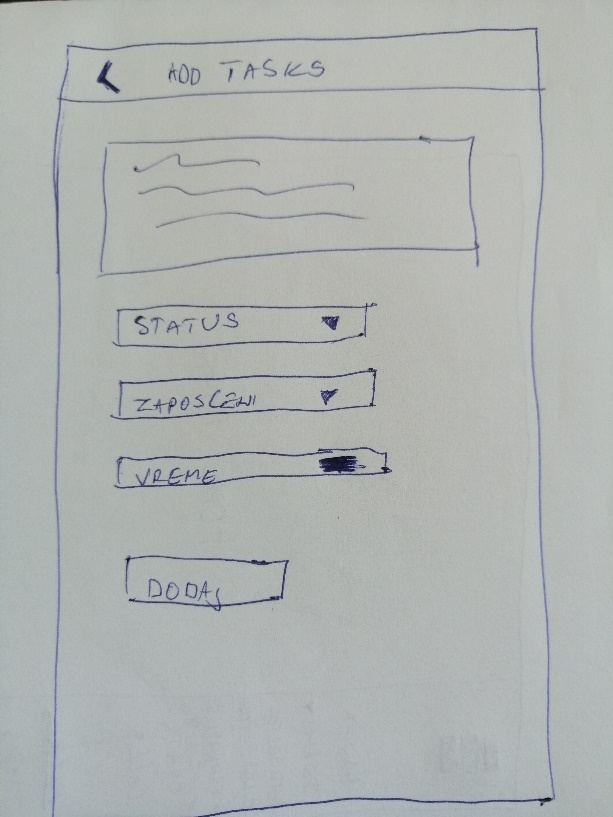 ADD TASKS
STATUS
ZAPOSLENI
VREME
DODAJ